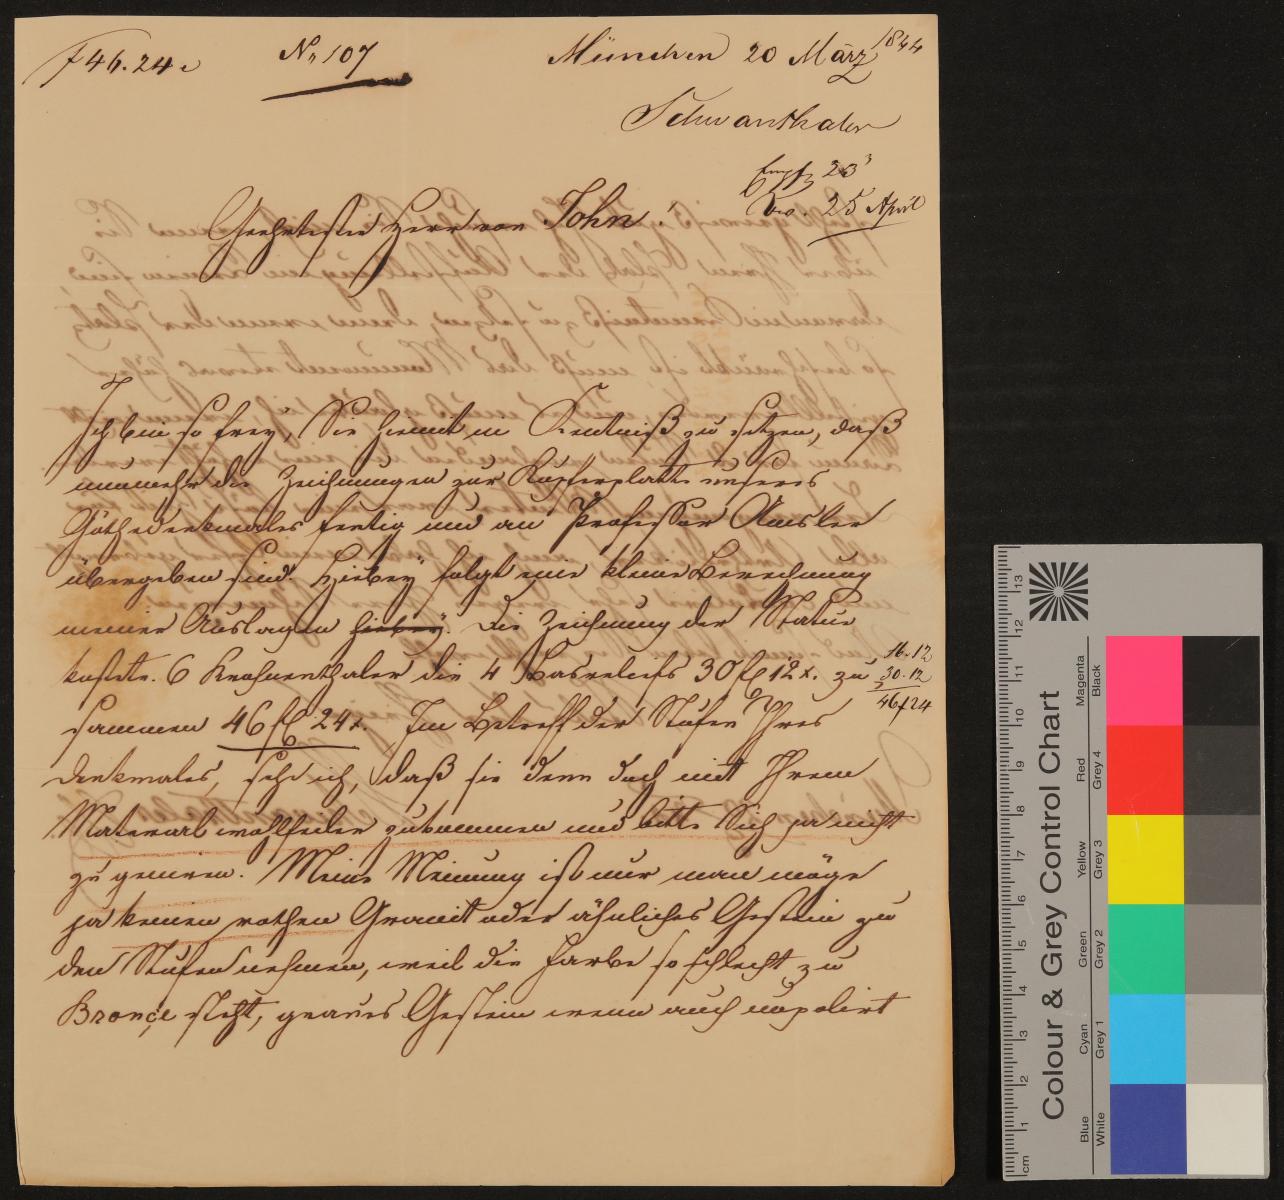 f 46.24x
No 107
München 20 März 1844
Schwanthaler
Empf 23
Bw. 25 April
Geehrtester Herr von John!
Ich bin so frey, Sie hiemit in Kentniß zu setzen, daß
nunmehr die Zeichnungen zur Kupferplatte unseres
Göthedenkmales fertig und an Professor Amsler
übergeben sind. Hiebey folgt eine kleine Berechnung
meiner Auslagen hiebey. Die Zeichnung der Statue
kostete 6 Kronenthaler die 4 Basreliefs 30 fl 12 x. zu
16.12
30.12
46f24
sammen 46 fl 24 x. Im Betreff der Stufen Ihres
Denkmales, sehe ich, daß sie denn doch mit Ihrem
Material wohlfeiler zukommen und bitte Sich ja nicht
zu geniren. Meine Meinung ist nur man möge
ja keinen rothen Granit oder ähnliches Gestein zu
den Stufen nehmen, weil die Farbe so schlecht zu
Bronçe steht, graues Gestein wenn auch unpolirt
Colour & Grey Control Chart
Blue Cyan Green Yellow Red Magenta
White Grey 1 Grey 2 Grey 3 Grey 4 Black
cm 1 2 3 4 5 6 7 8 9 10 11 12 13